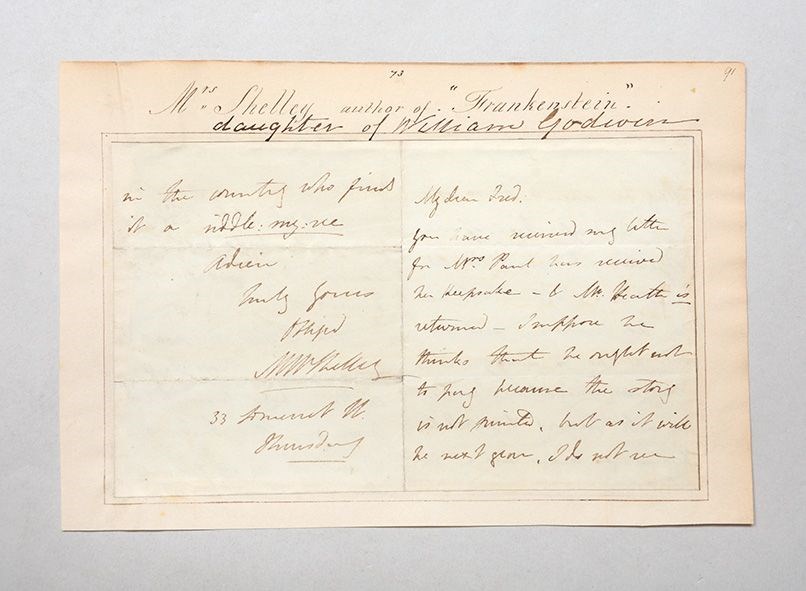 73
91
Mrs. Shelley author of "Frankenstein".
daughter of William Godwin
in the country who finds
it a riddle: my: ree
Adieu
truly yours
Obliged
MWShelley
33 Somerset St.
Thursday
My dear Fred.
You have received my letter
for Mrs. Paul has received
her Keepsake – & Mr. Heath is
returned – I suppose he
thinks that he ought not
to pay because the story
is not printed, but as it will
be next year, I do not see